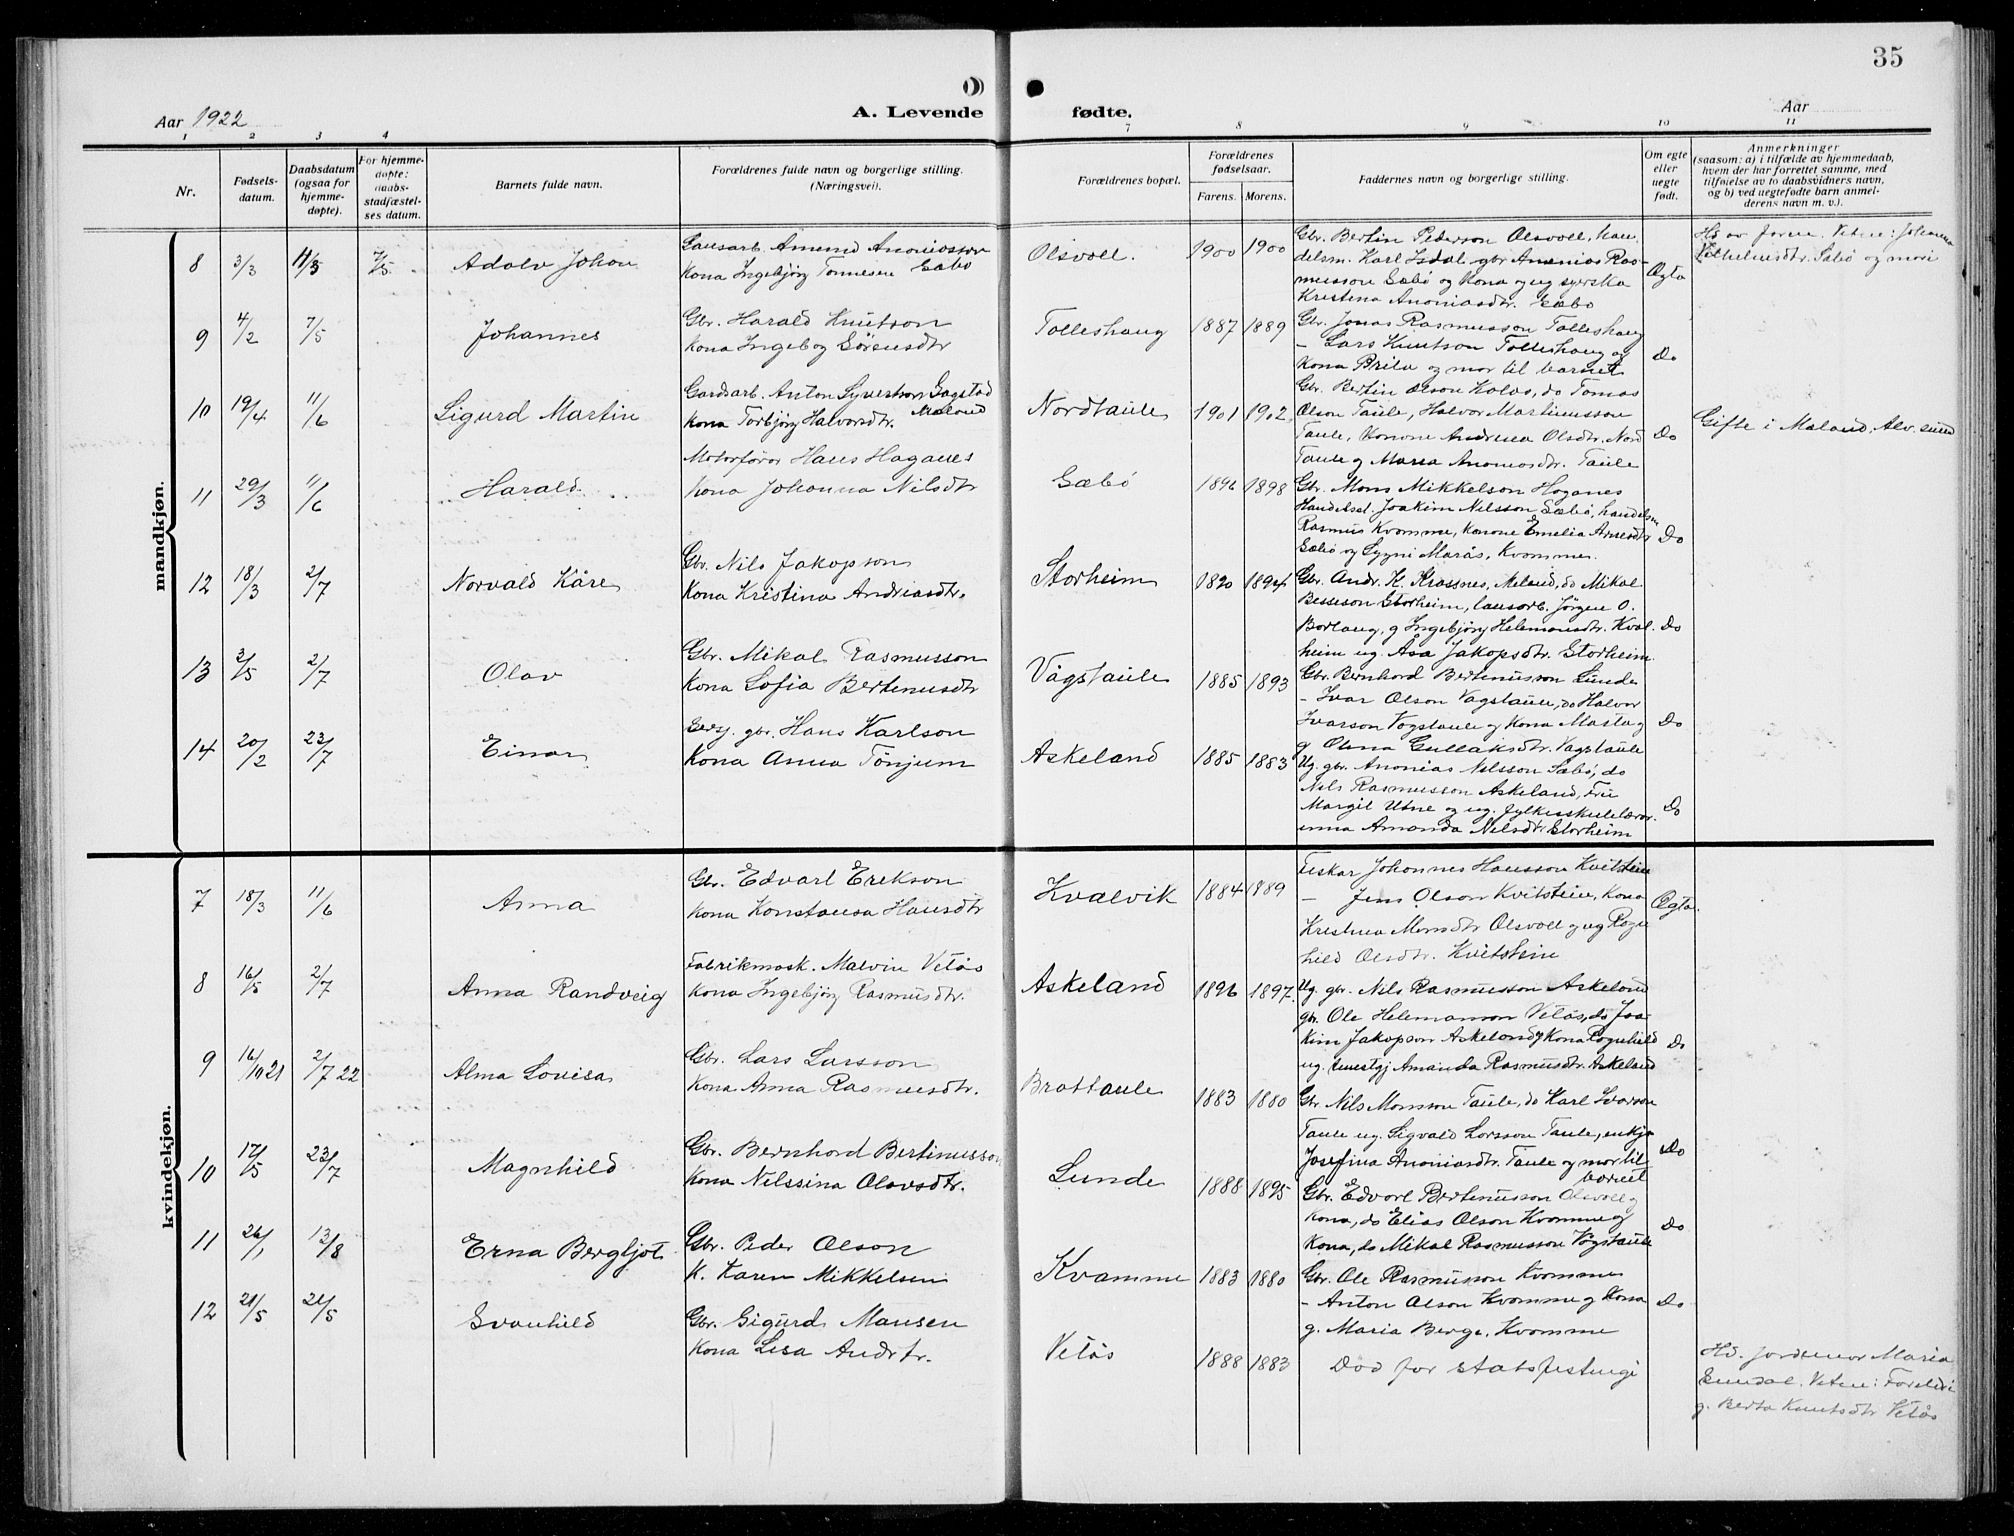 35
Aar 1922
A. Levende fødte.
Aar
1 2 3 4 7 8 9 10 11
Nr.
Fødsels-
datum.
Daabsdatum
(ogsaa for
hjemme-
døpte).
For hjemme-
døpte:
daabs-
stadfæstel-
ses datum.
Barnets fulde navn.
Forældrenes fulde navn og borgerlige stilling.
(Næringsvei).
Forældrenes bopæl.
Forældrenes
fødselsaar.
Farens. Morens.
Faddernes navn og borgerlig stilling.
Om egte
eller
uegte
født.
Anmerkninger
(saasom: a) i tilfælde av hjemmedaab,
hvem der har forrettet samme, med
tilføielse av to daabsvidners navn,
og b) ved uegtefødte barn anmel-
derens navn m. v.).
mandkjøn.
8 3/3 11/3 7/5 Adolv Johan
Lausarb. Amund Ananiasson
Kona Ingebjörg Tonnesen Sæbö
Olsvoll. 1900 1900
Gbr. Bertin Pederson Olsvoll, han-
delsm. Karl Isdal, gbr Ananias Ras-
musson Sæbö og Kona og ug syerska
Kristina Ananiasdtr. Sæbö
Ægta
Vilhelmsdtr. Sæbö og mori
9 4/2 7/5 Johannes
Gbr. Harald Knutson
Kona Ingebog Sörensdtr
Tolleshaug 1887 1889
Gbr. Jonas Rasmusson Tolleshaug
– Lars Knutson Tolleshaug og
Kona Brita og mor til barnet
Do
10 19/4 11/6 Sigurd Martin
Gardsarb. Anton Syverson Gagstad
Kona Torbjörg Halvorsdtr. Meland
Nordtaule 1901 1902
Gbr. Bertin Olson Kolås, do Tomas
Olson Taule, Halvor Martinusson
Taule, Konone Andrea Olsdtr. Nord
Taule g Maria Ananiasdtr. Taule
Do
Gifte i Meland, Alv. sund
11 29/3 11/6 Harald
Motorförar Hans Hoganes
Kona Johanna Nilsdtr
Sæbö 1896 1898
Gbr. Mons Mikkelson Hoganes
Handelsd. Joakim Nilsson Sæbö, handelsm
Rasmus Kvamme, Konone Emelia Arnesdtr
Sæbö og Sygni Marås, Kvamme.
Do
12 18/3 2/7 Norvald Kåre
Gbr. Nils Jakopson
Kona Kristina Andriasdtr.
Storheim 1890 1894
Gbr. Andr. K. Krossnes, Meland, do Mikal
Besseson Storheim, lausarb. Jörgen O.
Borlaug, g Ingebjörg Helemansdtr. Kval-
heim ug. Åsa Jakopsdtr. Storheim.
Do
13 3/5 2/7 Olav
Gbr. Mikal Rasmusson
Kona Sofia Bertinusdtr
Vågstaule 1885 1893
Gbr. Bernhard Bertinusson Lunde
– Ivar Olson Vagstaule, do Halvor
Ivarson Vogstaule g Kona Marta og
g. Olena Gullaksdtr. Vagstaule
Do
14 20/2 23/7 Einar
gbr. Hans Karlson
Kona Anna Tönjum
Askeland 1885 1883
Ug. gbr. Ananias Nilsson Sæbö, do
Nils Rasmusson Askeland, Frü
Margit Utne og ug. fylkesskulelærar-
inna Amanda Nilsdtr. Storheim
Do
kvindekjøn.
7 18/3 11/6 Anna
Gbr. Edvart Erekson
Kona Konstansa Hansdtr
Kvalvik 1884 1889
Fiskar Johannes Hansson Kvitstein
– Jens Olson Kvitstein, Kona
Kristina Monsdtr Olsvoll og ug Ragn
hild Olsdtr. Kvitstein
Ægta
8 16/5 2/7 Anna Randveig
Fabrikmask. Malvin Vetås
Kona Ingebjörg Rasmusdtr.
Askeland 1896 1897
Ug. gbr. Nils Rasmusson Askeland
gbr. Ole Helemanson Vetås, do Joa-
kim Jakopson Askeland g Kona Ragnhild
ug. tenestgj Amanda Rasmusdtr. Askeland
Do
9 16/10 21 2/7 22 Alma Lovisa
Gbr. Lars Larsson
Kona Anna Rasmusdtr.
Brattaule 1883 1880
Gbr Nils Monsson Taule, do Karl Ivarson
Taule ug. Sigvald Larsson Taule, enkja
Josefina Ananiasdtr. Taule og mor til
barnet
Do
10 17/5 23/7 Magnhild
Gbr. Bernhard Bertinusson
Kona Nilssina Olavsdtr.
Lunde 1888 1895
Gbr. Edvart Bertinusson Olsvoll g
Kona, do Elias Olson Kvamme g
Kona, do Mikal Rasmusson Vågstaule
Do
11 26/1 13/8 Erna Bergljot
Gbr. Peder Olson
K. Karen Mikkelsen
Kvamme 1883 1880
Gbr. Ole Rasmusson Kvamme
– Anton Olson Kvamme g Kona
g. Maria Berge, Kvamme
Do
12 21/5 21/5 Svanhild
Gbr. Sigurd Mansen
Kona Lisa Andrtr.
Vetås 1888 1883
Död for statsfestingi
Hd. jordmor Maria
Vitne: Foreldri
g. Berta Knutsdtr Vetås